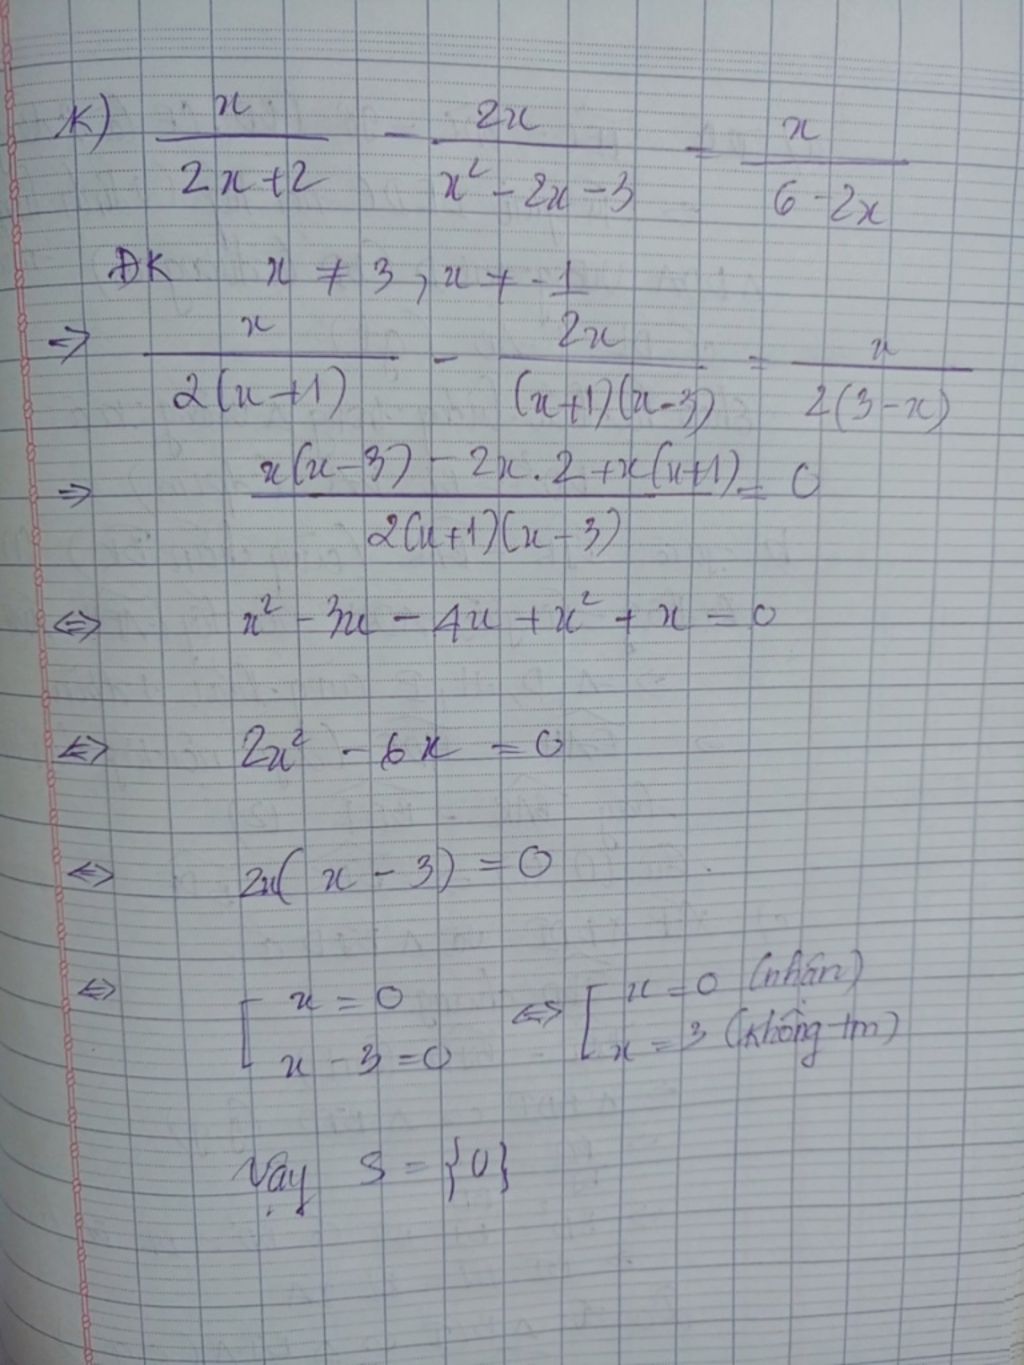 K) x/(2x+2) - 2x/(x² - 2x - 3) = x/(6 - 2x)
ĐK x ≠ 3, x ≠ -1
⇒ x/(2(x+1)) - 2x/((x+1)(x-3)) = x/(2(3-x))
⇒ (x(x-3) - 2x.2 + x(x+1))/(2(x+1)(x-3)) = 0
⇔ x² - 3x - 4x + x² + x = 0
⇔ 2x² - 6x = 0
⇔ 2x(x - 3) = 0
⇔ [ x = 0 ⇔ [ x = 0 (nhận)
x - 3 = 0 x = 3 (không tm)
Vậy S = {0}